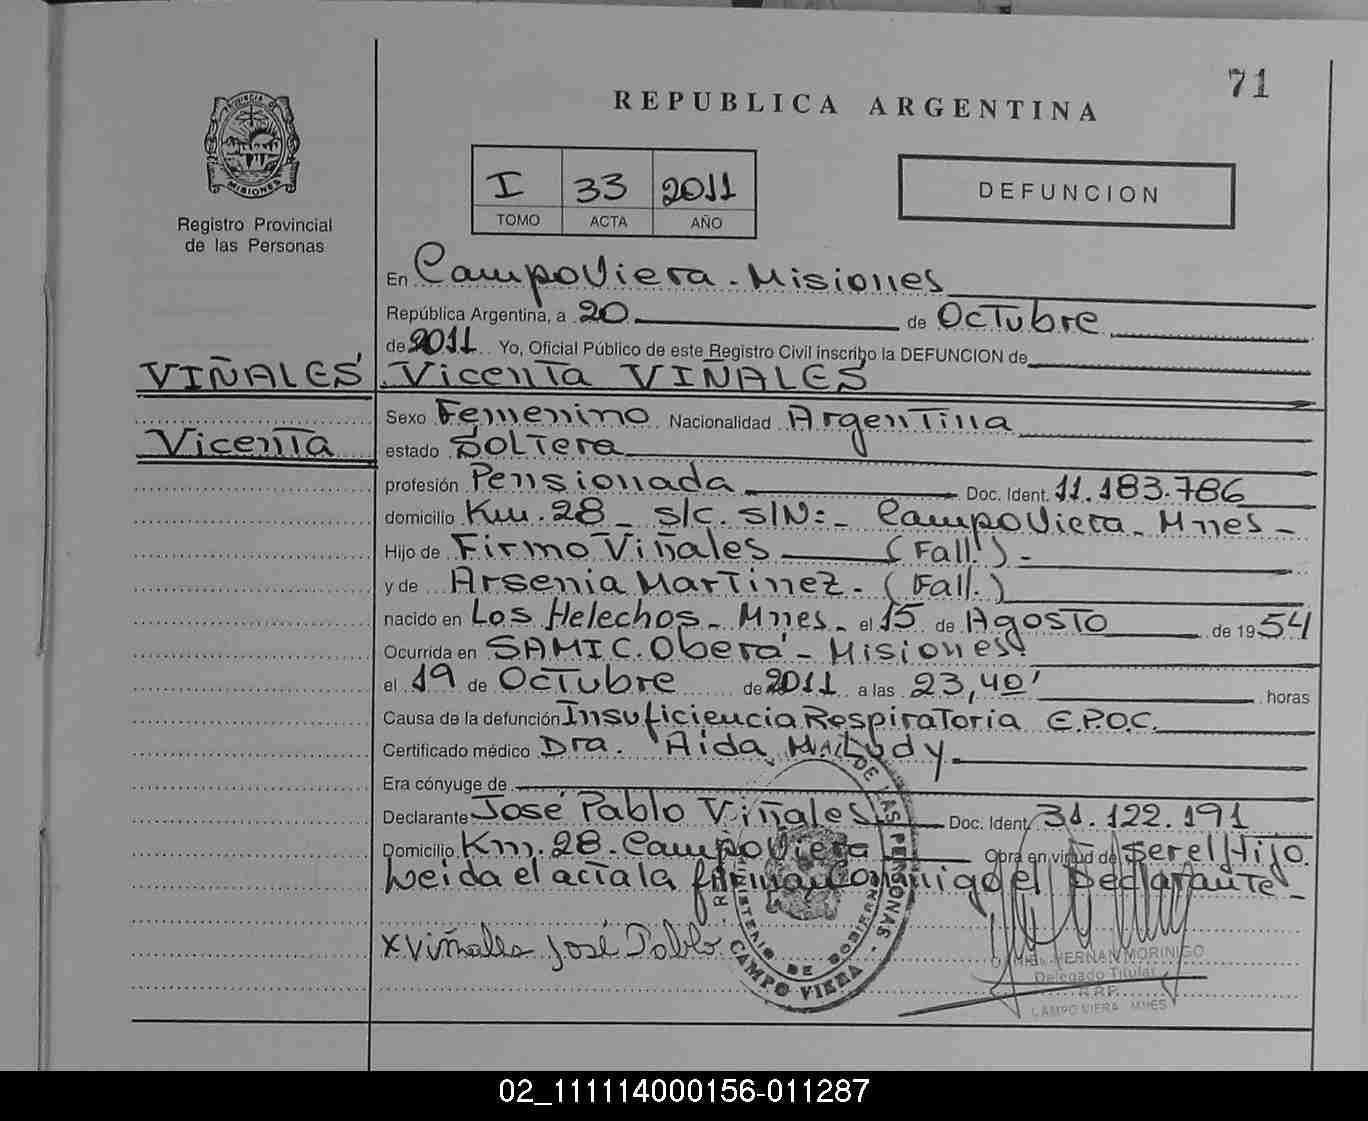 71
REPUBLICA ARGENTINA
PROVINCIA DE
MISIONES
Registro Provincial
de las Personas
I 33 2011
TOMO ACTA AÑO
DEFUNCION
En Campo Viera - Misiones
República Argentina, a 20 de Octubre
de 2011 Yo, Oficial Público de este Registro Civil inscribo la DEFUNCION de
VIÑALES Vicenta VIÑALES
Sexo Femenino Nacionalidad Argentina
Vicenta
estado Soltera
profesión Pensionada Doc. Ident. 11.183.786
domicilio Km. 28 - s/c. S/N:- Campo Viera - Mnes-
Hijo de Firmo Viñales (Fall.) -
y de Arsenia Martinez - (Fall.)
nacido en Los Helechos - Mnes - el 15 de Agosto de 1954
Ocurrida en SAMIC. Oberá - Misiones
el 19 de Octubre de 2011 a las 23,40' horas
Causa de la defunción Insuficiencia Respiratoria E.P.O.C.
Certificado médico Dra. Aida
Era cónyuge de
Declarante José Pablo Viñales Doc. Ident. 31.122.191
Domicilio Km. 28. Campo Viera Obra en virtud de ser el Hijo.
Leida el acta la firma conmigo el Declarante -
x Viñales José Pablo
DE LAS PERSONAS -
MINISTERIO DE GOBIERNO
CAMPO VIERA
HERNAN MORINIGO
Delegado Titular
R.P.P.
CAMPO VIERA MNES
02_111114000156-011287